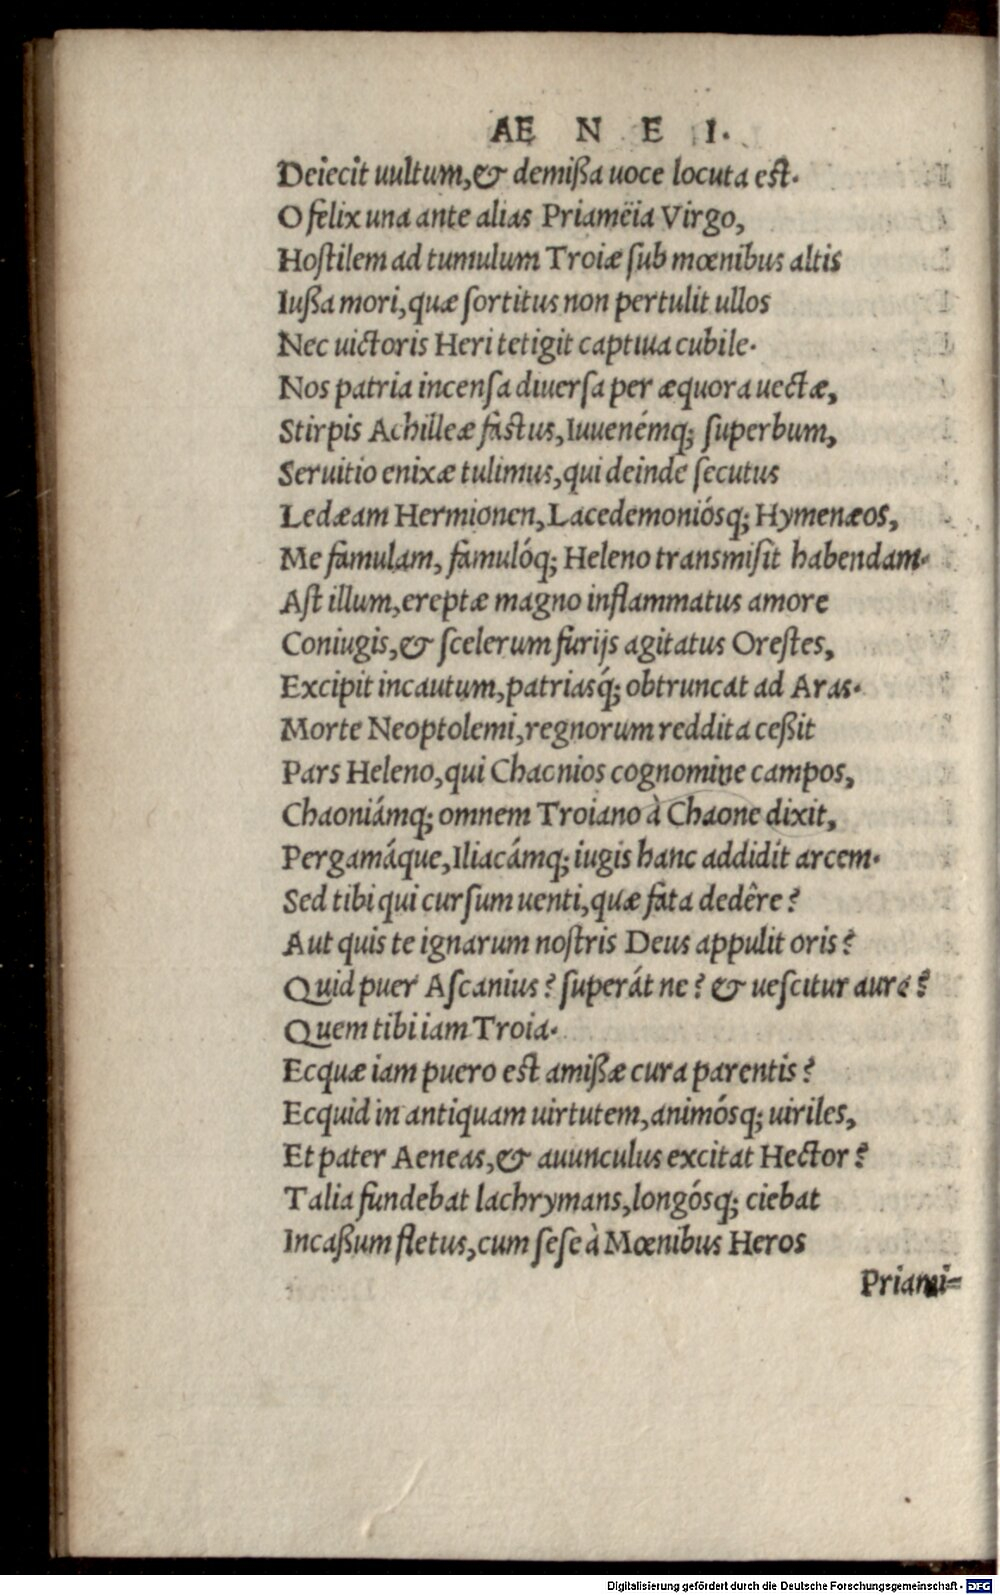 AE N E I.
Deiecit uultum,& demißa uoce locuta est.
O felix una ante alias Priamëia Virgo,
Hostilem ad tumulum Troiæ sub mœnibus altis
Iußa mori,quæ sortitus non pertulit ullos
Nec uictoris Heri tetigit captiua cubile.
Nos patria incensa diuersa per æquora uectæ,
Stirpis Achilleæ fastus,Iuuenémq; superbum,
Seruitio enixæ tulimus,qui deinde secutus
Ledæam Hermionen,Lacedemoniósq; Hymenæos,
Me famulam, famulóq; Heleno transmisit habendam.
Ast illum,ereptæ magno inflammatus amore
Coniugis,& scelerum furijs agitatus Orestes,
Excipit incautum,patriasq́; obtruncat ad Aras.
Morte Neoptolemi,regnorum reddita ceßit
Pars Heleno,qui Chaonios cognomine campos,
Chaoniámq; omnem Troiano à Chaone dixit,
Pergamáque,Iliacámq; iugis hanc addidit arcem.
Sed tibi qui cursum uenti,quæ fata dedêre?
Aut quis te ignarum nostris Deus appulit oris?
Quid puer Ascanius? superát ne? & uescitur aura?
Quem tibi iam Troia.
Ecquæ iam puero est amißæ cura parentis?
Ecquid in antiquam uirtutem,animósq; uiriles,
Et pater Aeneas,& auunculus excitat Hector?
Talia fundebat lachrymans,longósq; ciebat
Incaßum fletus,cum sese à Mœnibus Heros
Priami=
Digitalisierung gefördert durch die Deutsche Forschungsgemeinschaft - DFG